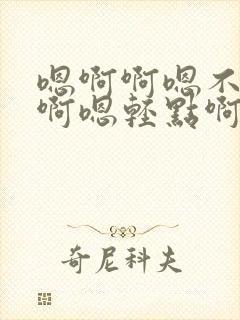 嗯啊啊嗯不
啊嗯輕點啊
奇尼科夫